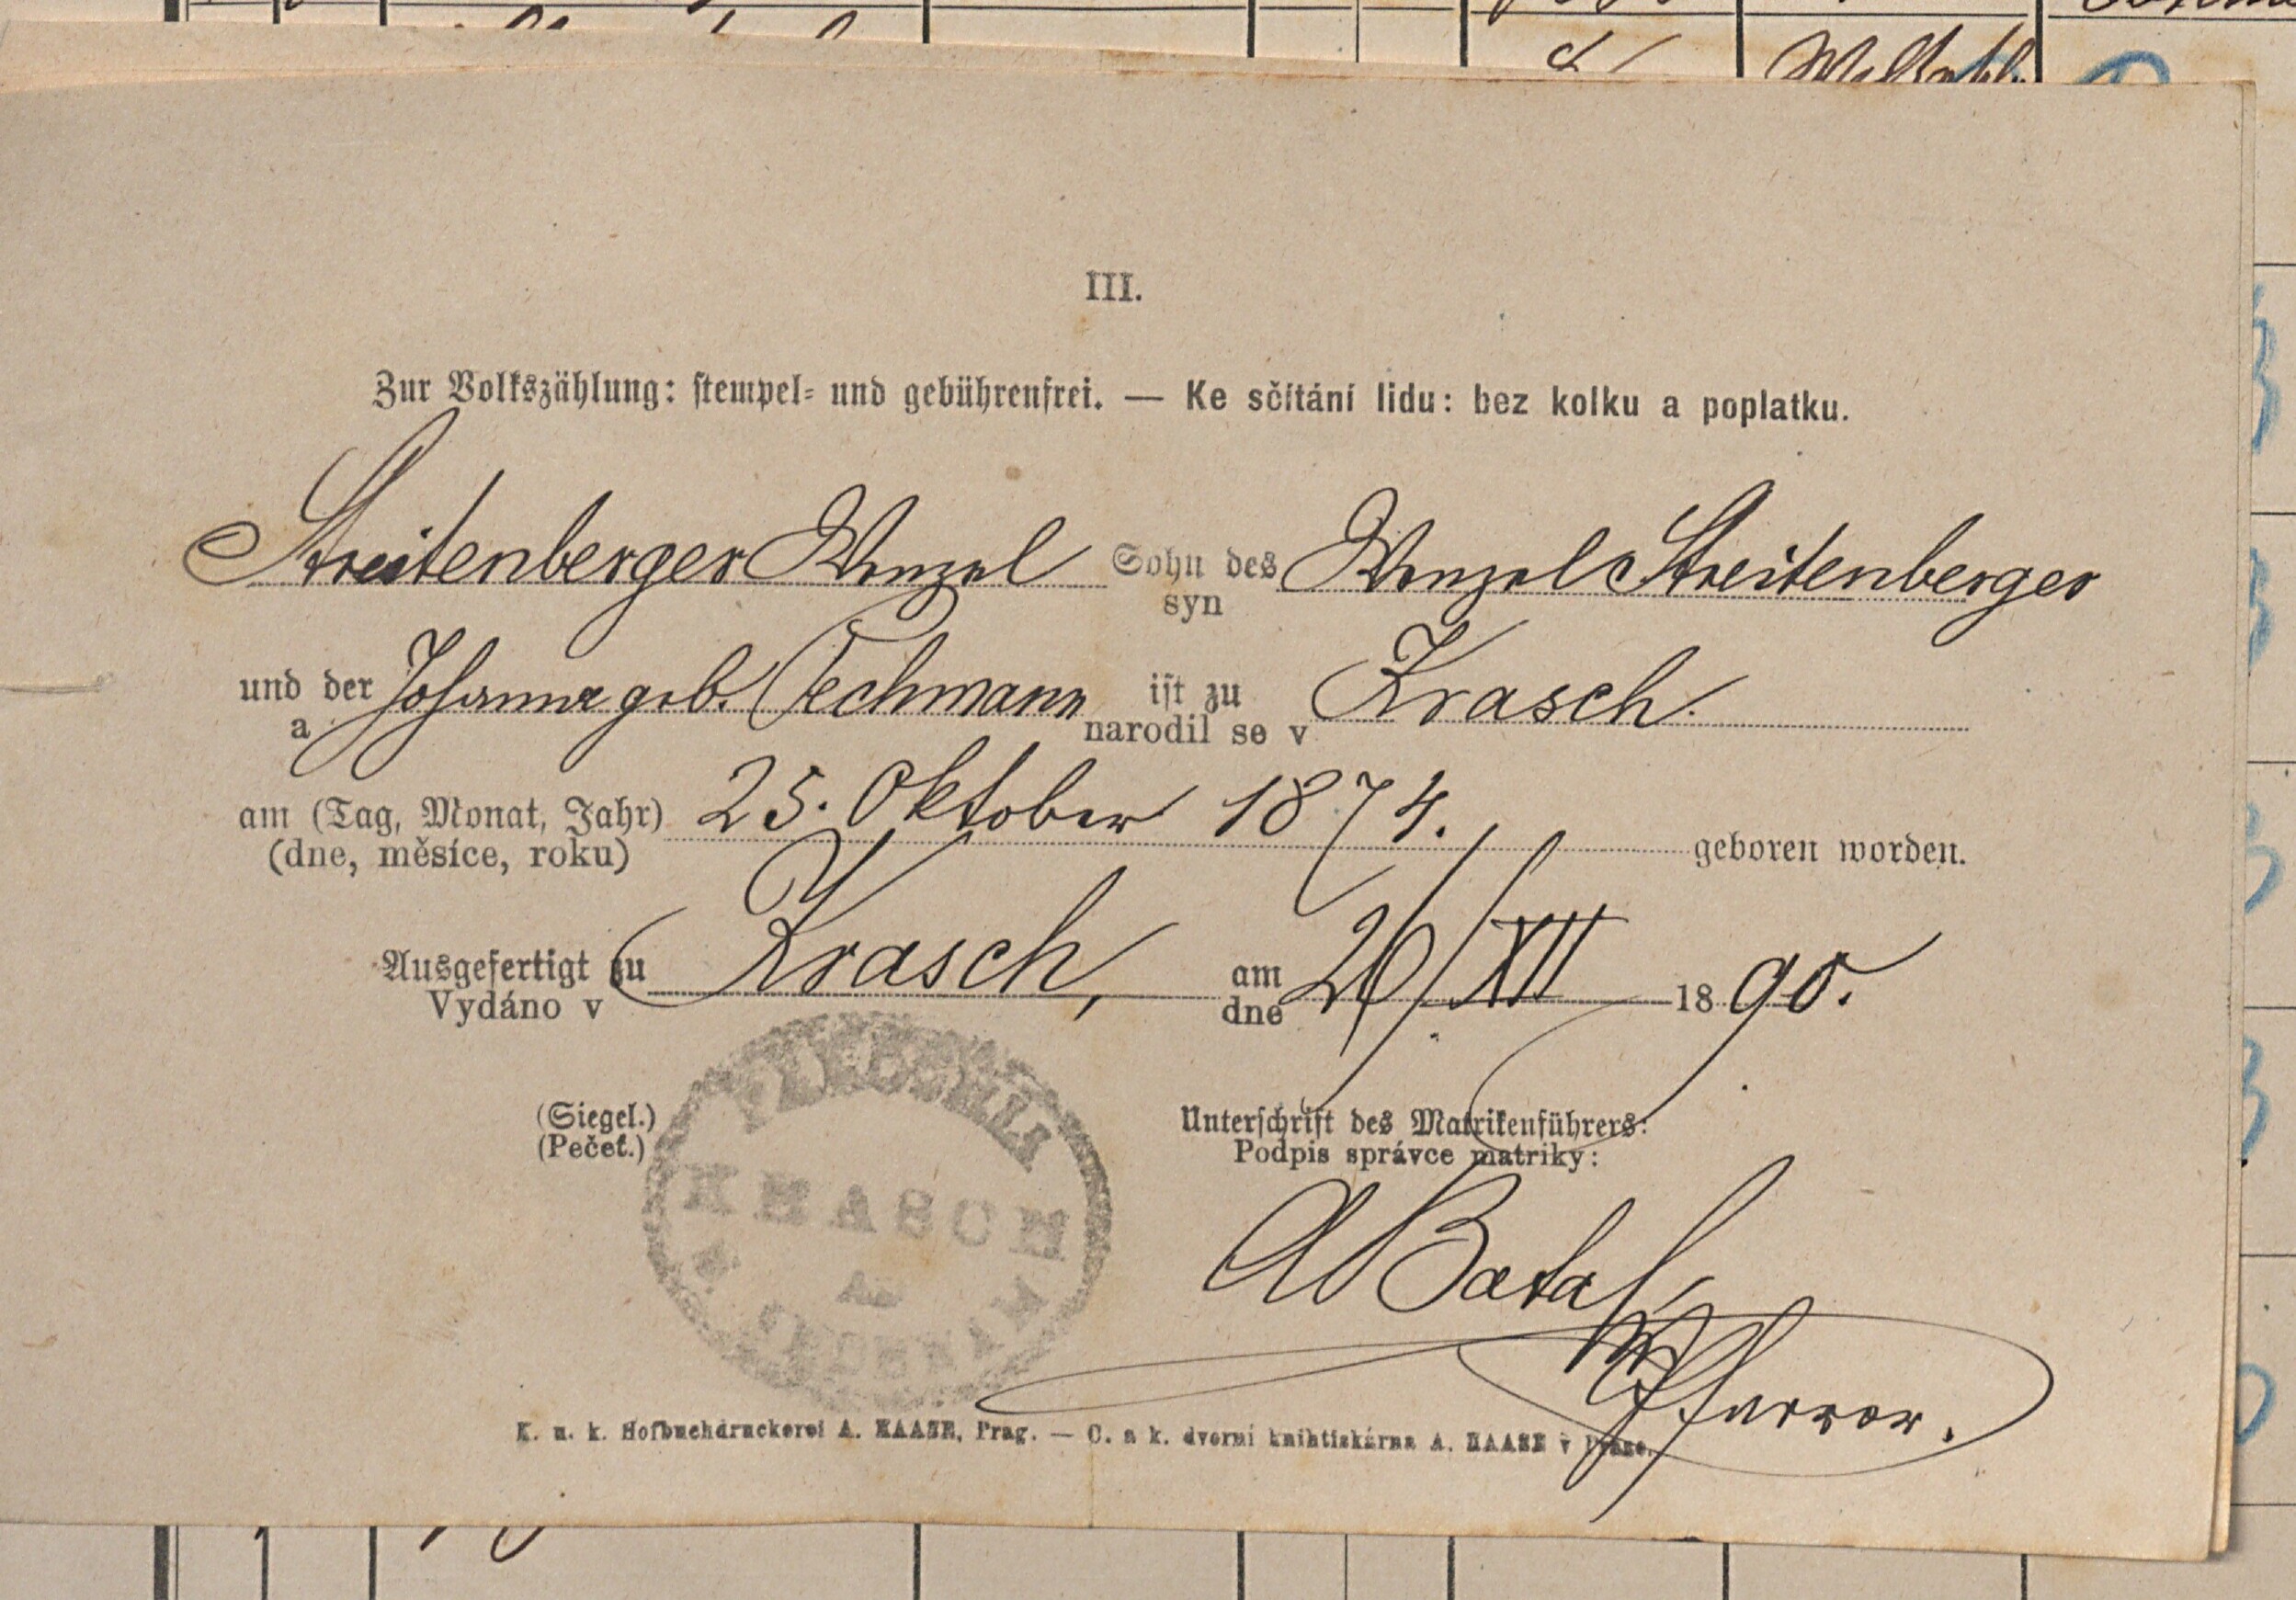 III.
Zur Volkszählung: stempel- und gebührenfrei. — Ke sčítání lidu: bez kolku a poplatku.
Streitenberger Wenzel Sohn des Wenzel Streitenberger
syn
und der Johanna geb. Techmann ist zu Krasch.
a narodil se v
am (Tag, Monat, Jahr) 25. Oktober 1874. geboren worden.
(dne, měsíce, roku)
Ausgefertigt zu Krasch, am 26/XII 1890.
Vydáno v dne
(Siegel.) Unterschrift des Matrikenführers:
(Pečeť.) Podpis správce matriky:
KRASCH
Pfarrer.
K. u. k. Hofbuchdruckerei A. HAASE, Prag. — C. a k. dvorní knihtiskárna A. HAASE v Praze.